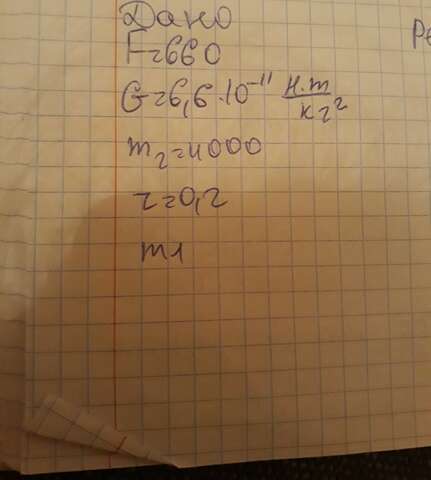 Дано
Ре
F=660
G=6,6·10⁻¹¹ Н·m/кг²
m₂=4000
r=0,2
m1